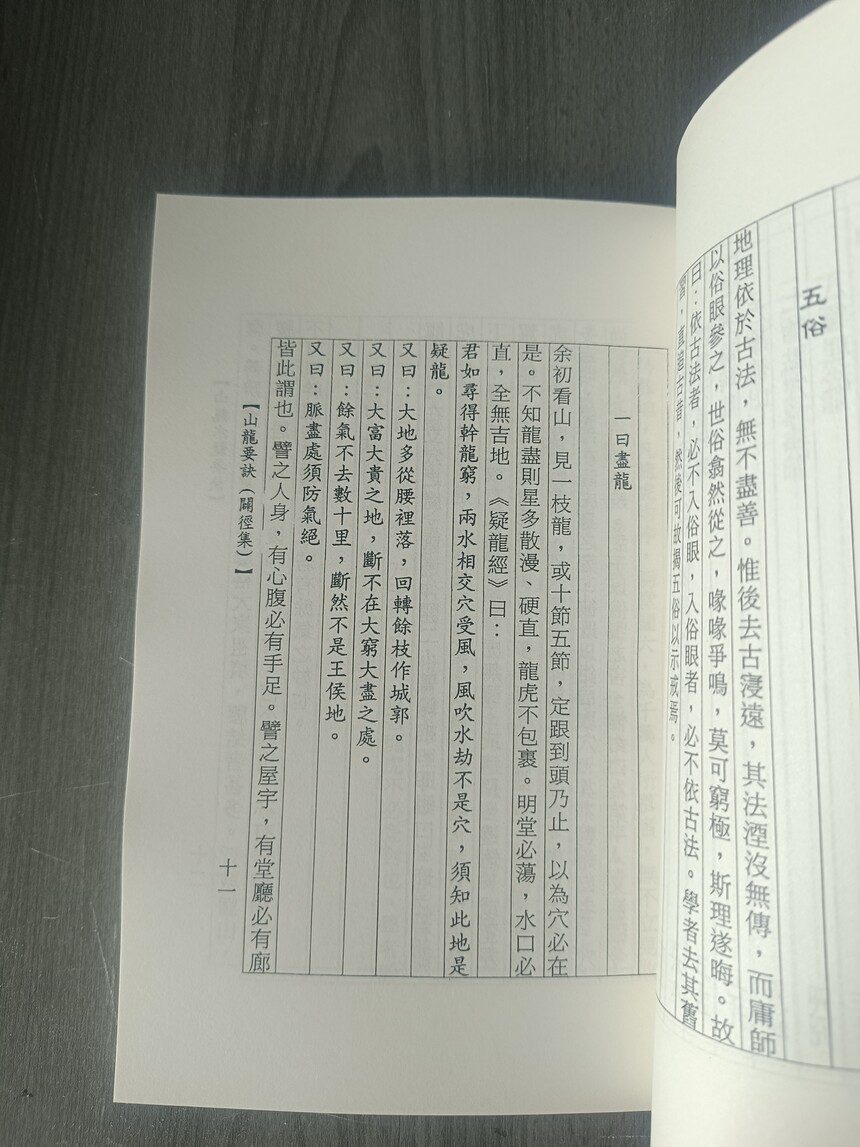 五俗
地理依於古法，無不盡善。惟後去古寖遠，其法湮沒無傳，而庸師
以俗眼參之，世俗翕然從之，喙喙爭鳴，莫可窮極，斯理遂晦。故
曰：依古法者，必不入俗眼，入俗眼者，必不依古法。學者去其舊
習，直追古昔，然後可故揭五俗以示戒焉。
一曰盡龍
余初看山，見一枝龍，或十節五節，定跟到頭乃止，以為穴必在
是。不知龍盡則星多散漫、硬直，龍虎不包裹。明堂必蕩，水口必
直，全無吉地。《疑龍經》曰：
君如尋得幹龍窮，兩水相交穴受風，風吹水劫不是穴，須知此地是
疑龍。
又曰：大地多從腰裡落，回轉餘枝作城郭。
又曰：大富大貴之地，斷不在大窮大盡之處。
又曰：餘氣不去數十里，斷然不是王侯地。
又曰：脈盡處須防氣絕。
皆此謂也。譬之人身，有心腹必有手足。譬之屋宇，有堂廳必有廊
【山龍要訣（闢徑集）】
十一